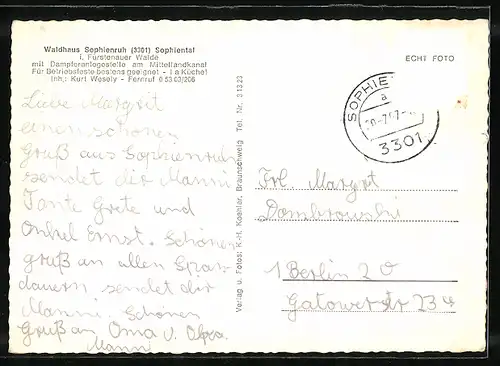 Waldhaus Sophienruh (3301) Sophiental
i. Fürstenauer Walde
mit Dampferanlegestelle am Mittellandkanal
Für Betriebsfeste bestens geeignet - I a Küche!
Inh.: Kurt Wesely - Fernruf 0 53 03/206
ECHT FOTO
SOPHIE
a
3301
Liebe Margrit
einen schönen
Gruß aus Sophienruh
sendet dir Manni
Tante Grete und
Onkel Ernst. Schönen
gruß an allen Span-
dauern sendet dir
Manni. Schönen
Gruß an Oma u. Opa.
Manni
Verlag u. Fotos: K.-H. Koehler, Braunschweig Tel. Nr. 3 13 23
Frl. Margrt
Dombrowski
1 Berlin 20
Gatowerstr 234